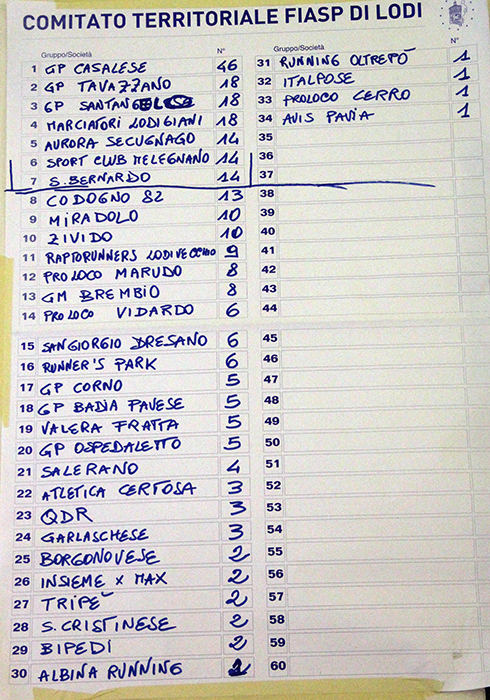 COMITATO TERRITORIALE FIASP DI LODI
Gruppo/Società N°
1 GP CASALESE 46
2 GP TAVAZZANO 18
3 GP SANTANGELO 18
4 MARCIATORI LODIGIANI 18
5 AURORA SECUGNAGO 14
6 SPORT CLUB MELEGNANO 14
7 S. BERNARDO 14
8 CODOGNO 82 13
9 MIRADOLO 10
10 ZIVIDO 10
11 RAPTORUNNERS LODIVECCHIO 9
12 PRO LOCO MARUDO 8
13 GM BREMBIO 8
14 PRO LOCO VIDARDO 6
15 SANGIORGIO DRESANO 6
16 RUNNER'S PARK 6
17 GP CORNO 5
18 GP BADIA PAVESE 5
19 VALERA FRATTA 5
20 GP OSPEDALETTO 5
21 SALERANO 4
22 ATLETICA CERTOSA 3
23 QDR 3
24 GARLASCHESE 3
25 BORGONOVESE 2
26 INSIEME X MAX 2
27 TRIPE' 2
28 S. CRISTINESE 2
29 BIPEDI 2
30 ALBINA RUNNING
Gruppo/Società N°
31 RUNNING OLTREPÒ 1
32 ITALPOSE 1
33 PROLOCO CERRO 1
34 AVIS PAVIA 1
35
36
37
38
39
40
41
42
43
44
45
46
47
48
49
50
51
52
53
54
55
56
57
58
59
60